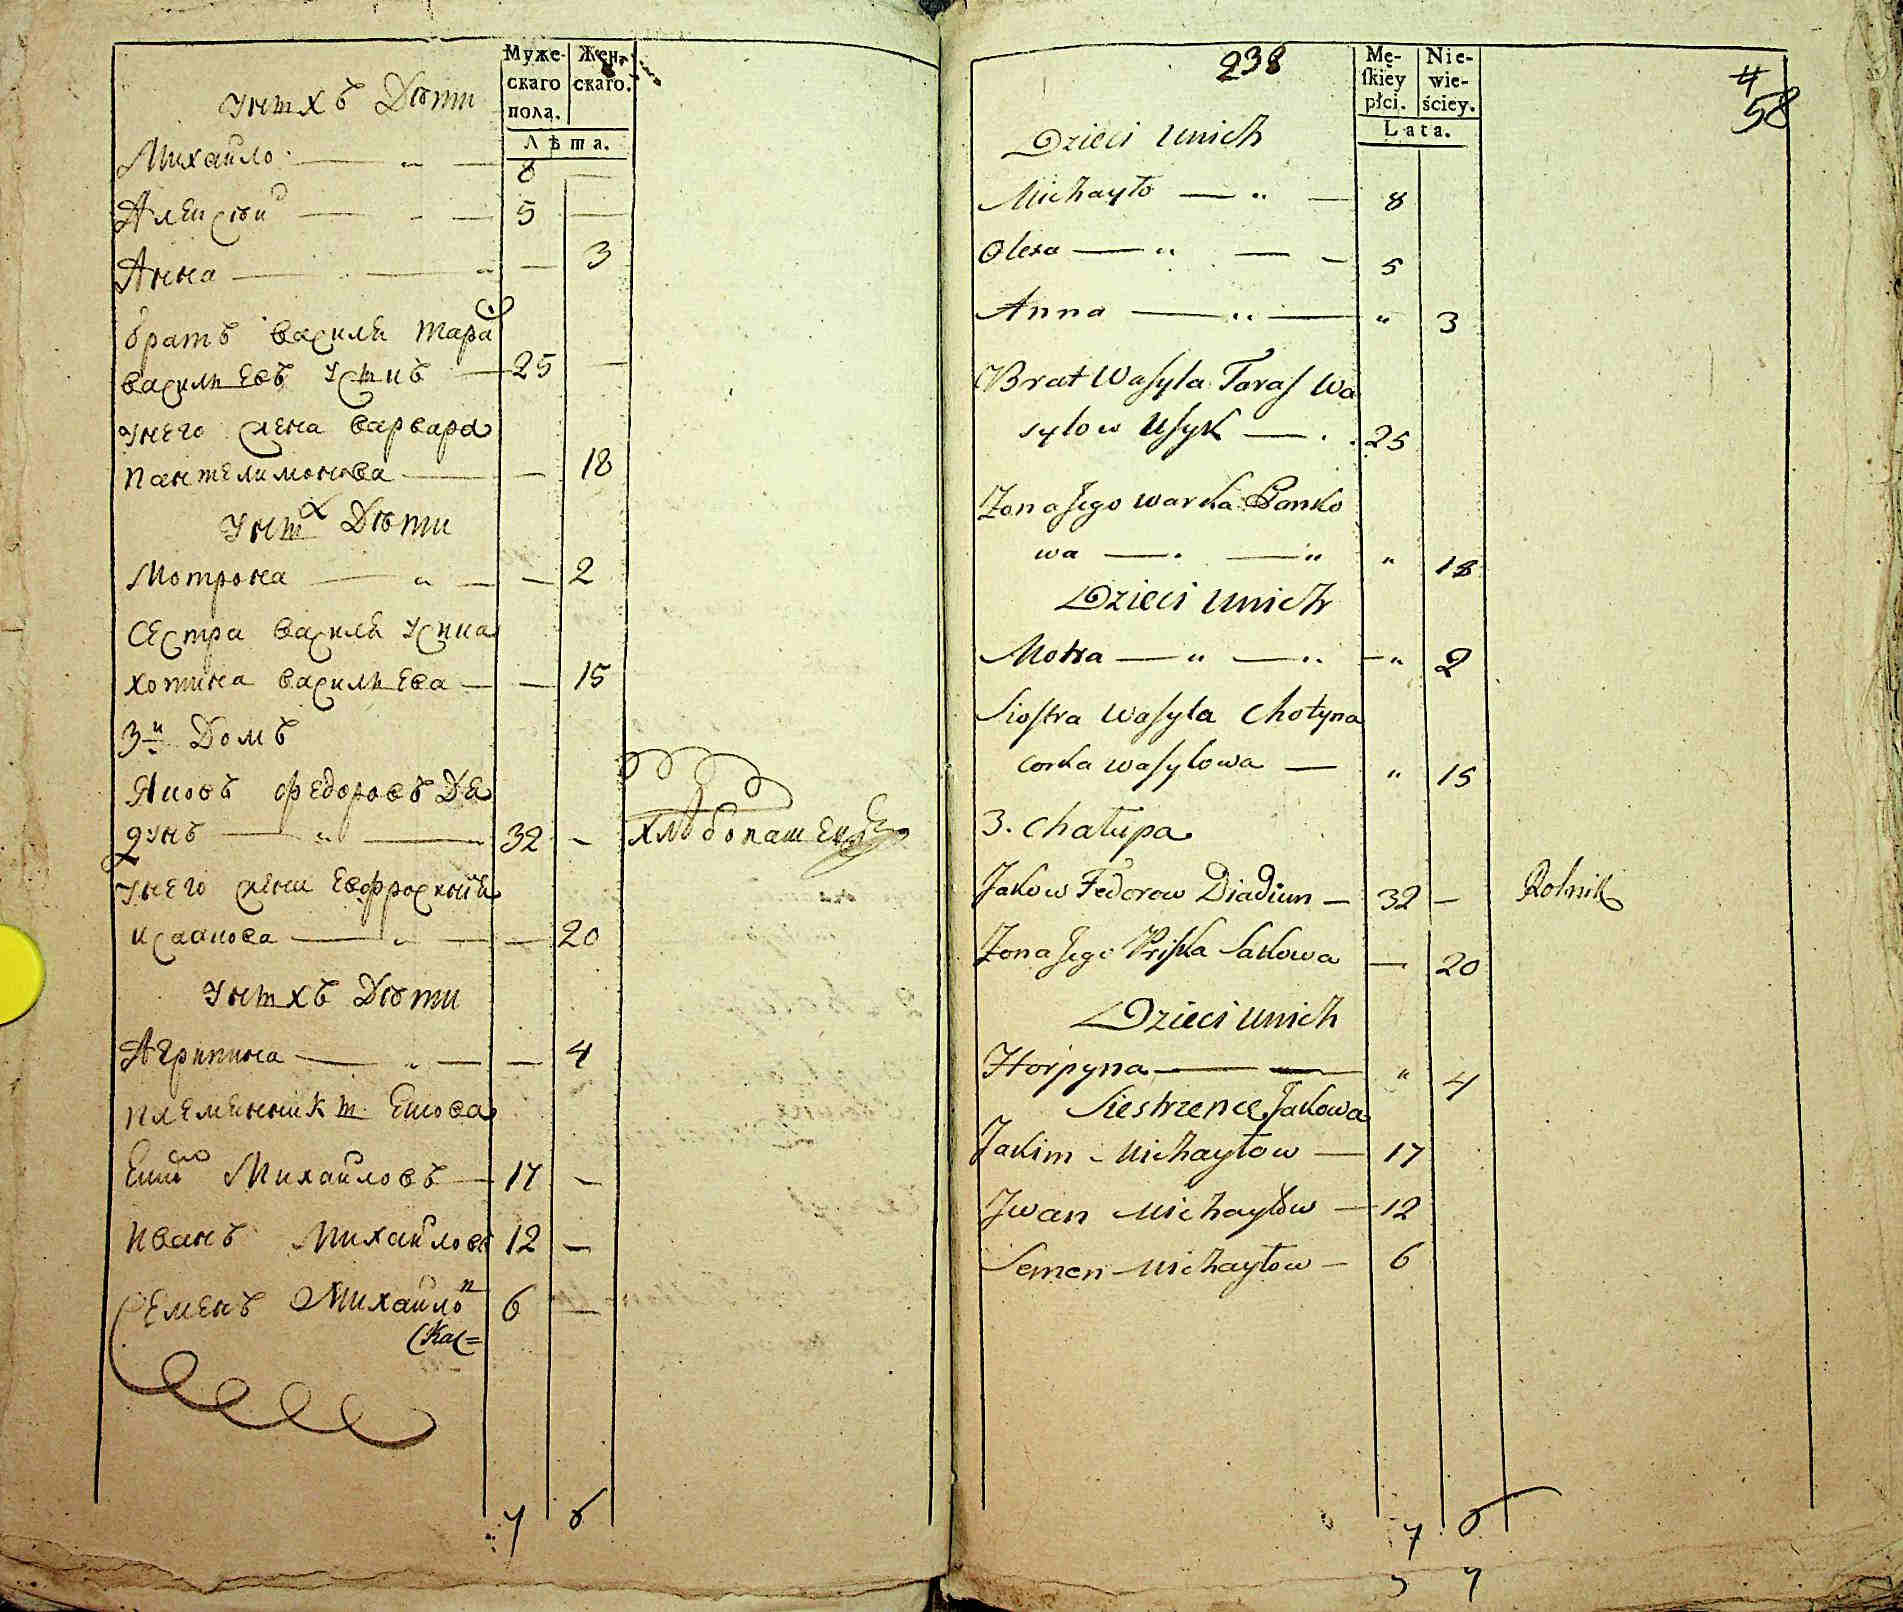 Муже-
скаго
пола.
Жен-
скаго.
Лѣта.
У нихъ Дѣти
Михайло — „ — 8 —
Алексѣй — - — 5 —
Анна — — „ — 3
братъ василя тарас
васильевъ Усикъ — 25 —
У него жена варвара
пантелимонова — — 18
У них Дѣти
Мотрона — „ — — 2
Сестра василя Усика
хотина васильева — — 15
3й Домъ
Яковъ федоровъ Дя
дунъ — „ — 32 - хлѣбопашецъ
У него жена Евфросиния
исакова — „ — — 20
У нихъ Дѣти
Агрипина — „ — — 4
племенники Якова
Еким Михайловъ — 17 –
иванъ Михайловъ 12 –
Семенъ Михайлов 6 —
7 6
238
#
58
Mę-
skiey
płci.
Nie-
wie-
ściey.
Lata.
Dzieci unich
Michayło — „ — 8
Olexa — „ — – 5
Anna — „ — „ 3
Brat Wasyla Taras Wa
sylow Usyk — . . 25
Zona Jego warka Panko
wa — . — „ „ 18
Dzieci unich
Motra — „ — „ – „ 2
Siostra wasyla Chotyna
corka wasylowa — „ 15
3. Chałupa
Jakow Fedorow Diadiun – 32 – Rolnik
Zona Jego Priska Sakowa — 20
Dzieci unich
Horpyna — — „ 4
Siestrzency Jakowa
Jakim Michayłow — 17
Jwan Michayłow — 12
Semen Michayłow – 6
7 6
7